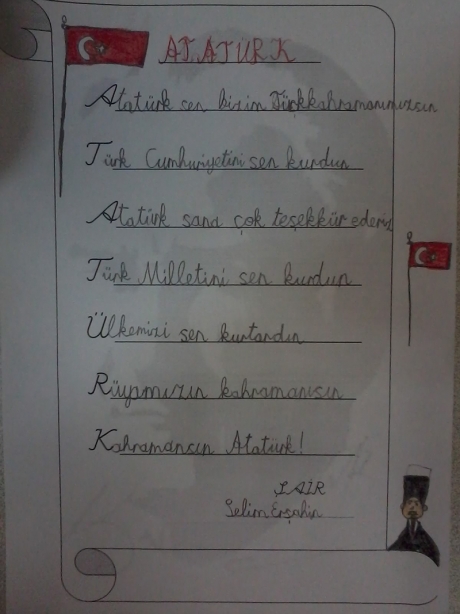 ATATÜRK
Atatürk sen bizim Türkkahramanımızsın
Türk Cumhuriyetini sen kurdun
Atatürk sana çok teşekkür ederiz
Türk Milletini sen kurdun
Ülkemizi sen kurtardın
Rüyamızın kahramanısın
Kahramansın Atatürk!
ŞAİR
Selim Erşahin